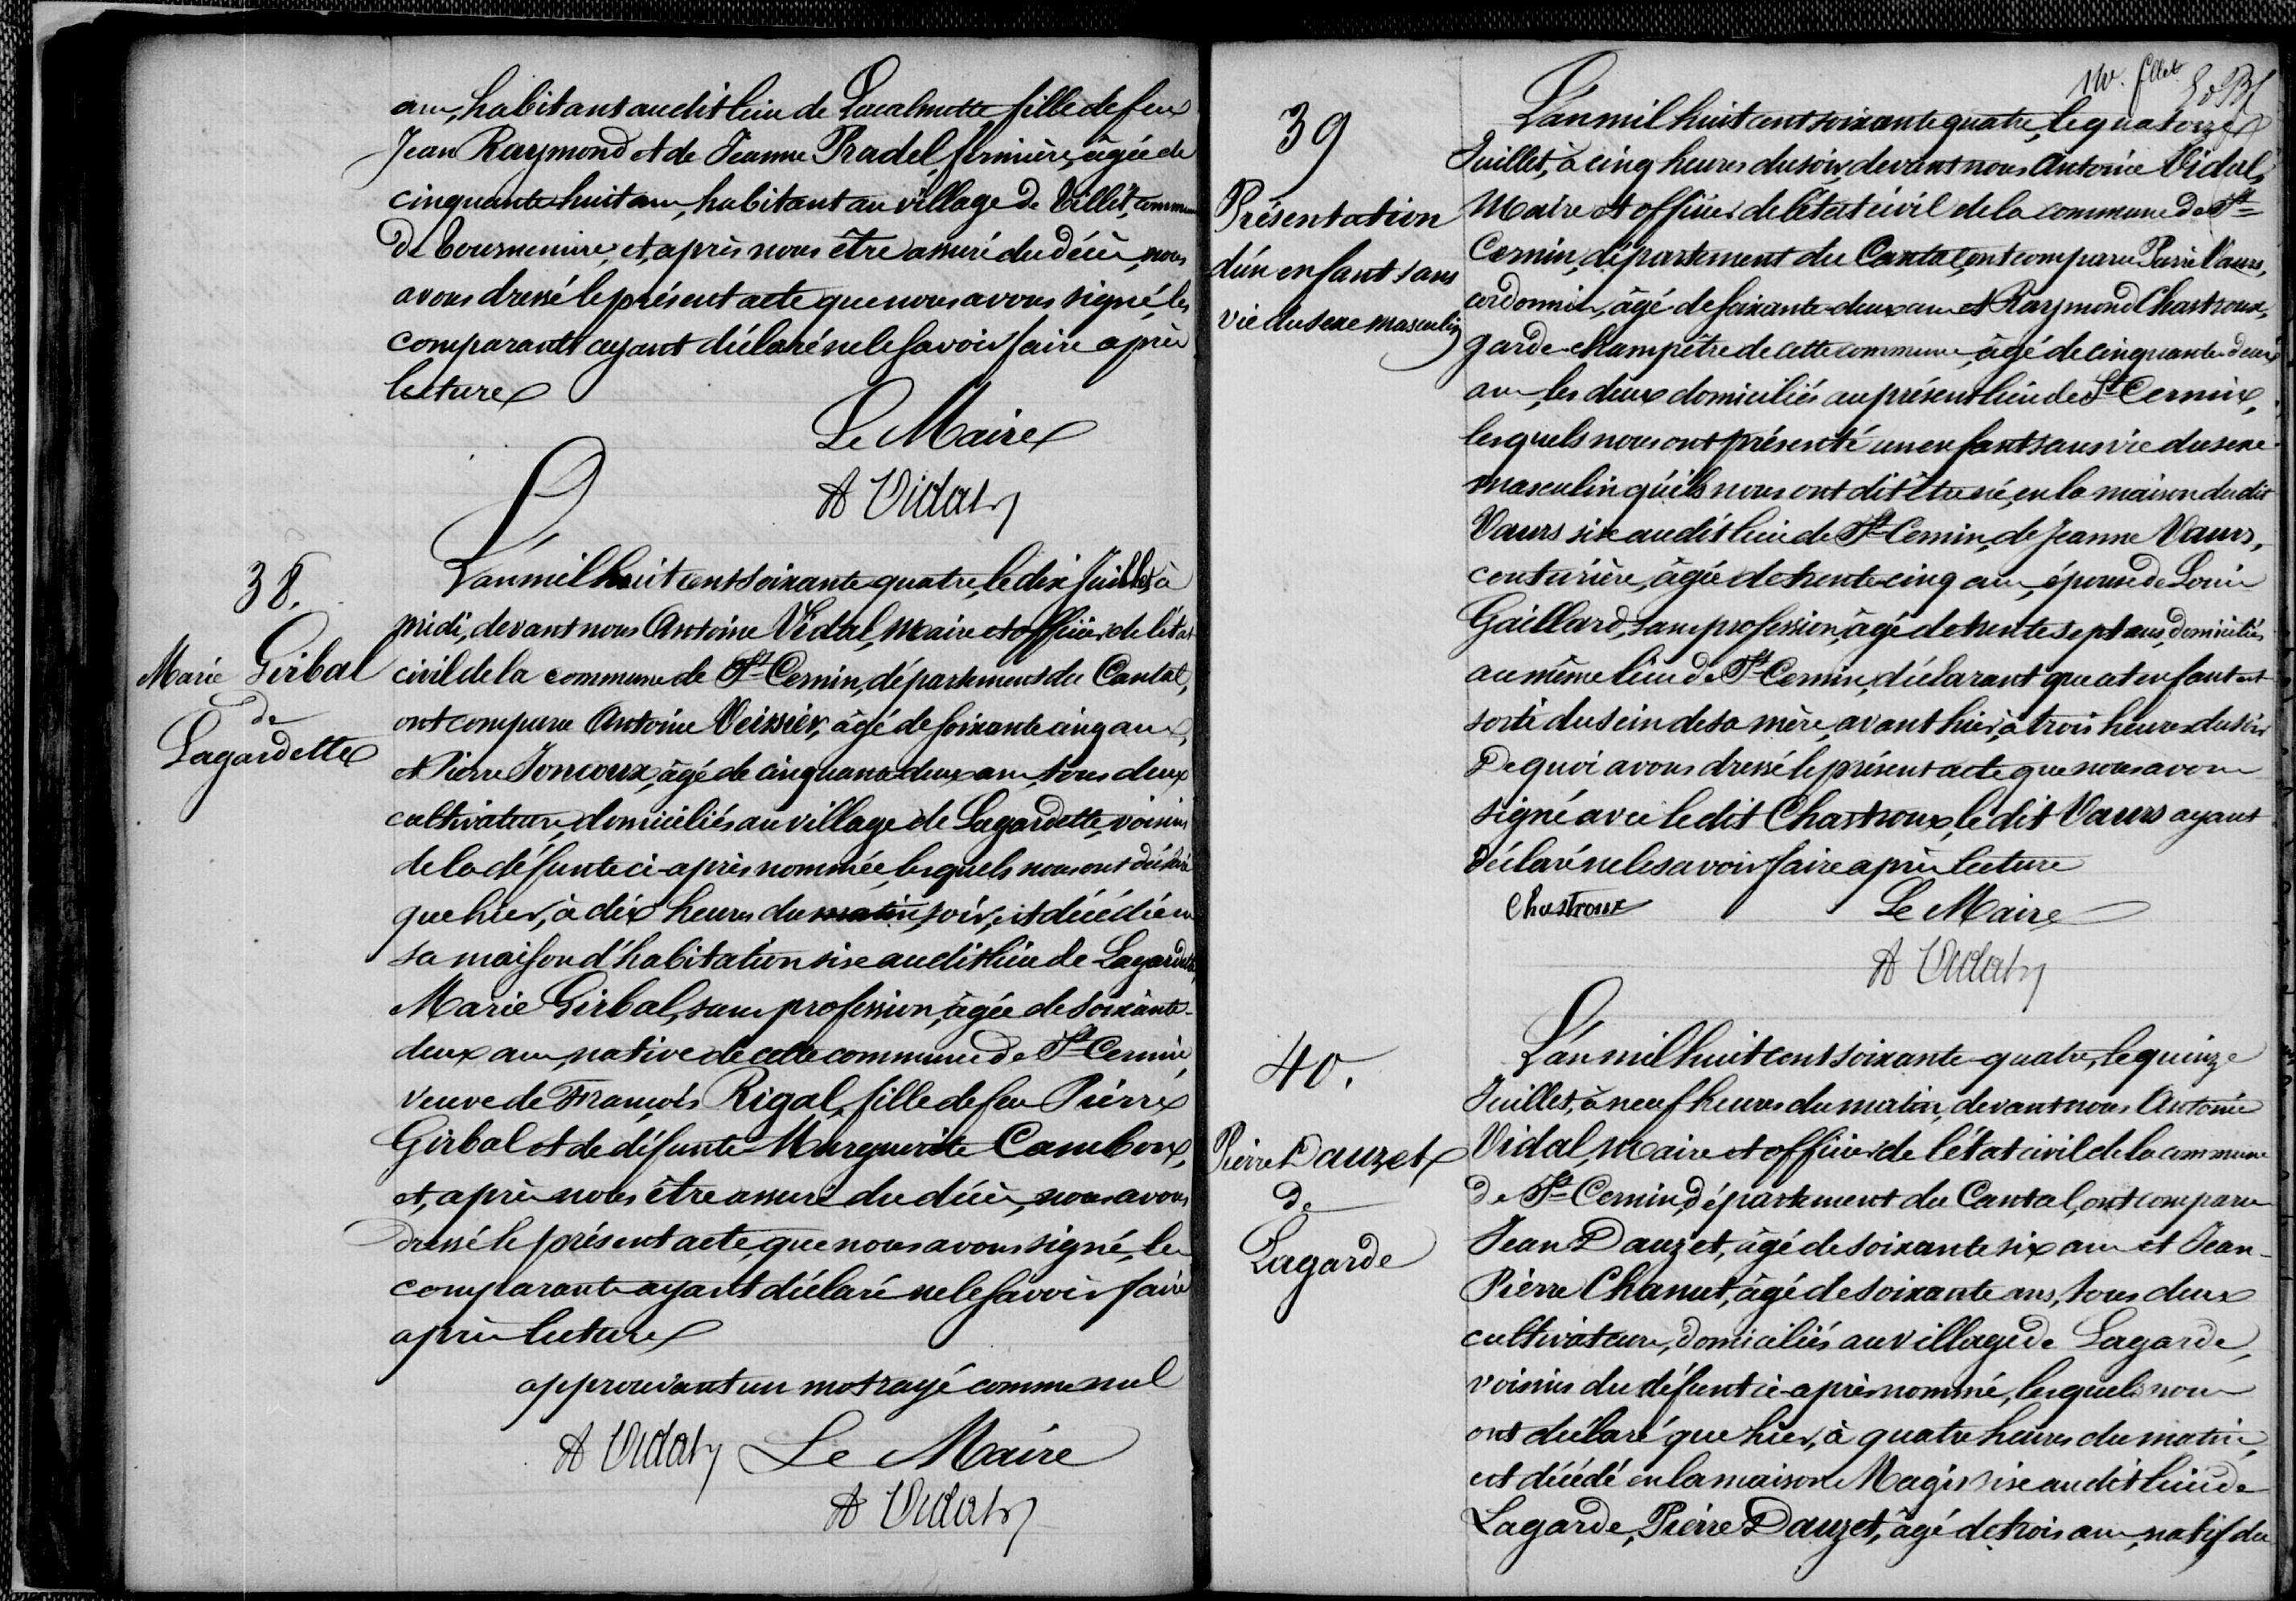 ans, habitant audit lieu de Lacalmette fille de feu
Jean Raymond et de Jeanne Pradel, fermière, âgée de
cinquante huit ans, habitant au village de Tillit, commune
de Tournemire, et, après nous être assuré du décès, nous
avons dressé le présent acte que nous avons signé, les
comparants ayant déclaré ne le savoir faire après
lecture
Le Maire
A Vidal
38.
Marie Girbal
de
Lagardette
L'an mil huit cent soixante quatre, le dix Juillet, à
midi, devant nous Antoine Vidal, Maire et officier de l'état
civil de la commune de St Cernin, département du Cantal,
ont comparu Antoine Veissier, âgé de soixante cinq ans,
et Pierre Joncoux, âgé de cinquante deux ans, tous deux
cultivateurs, domiciliés au village de Lagardette, voisins
de la défunte ci-après nommée, lesquels nous ont déclaré
que hier, à dix heures du matin, soir, est décédée en
sa maison d'habitation sise audit lieu de Lagardette,
Marie Girbal, sans profession, âgée de soixante-
deux ans, native de cette commune de St Cernin,
veuve de François Rigal, fille de feu Pierre
Girbal et de défunte Marguerite Cambon,
et, après nous être assuré du décès, nous avons
dressé le présent acte, que nous avons signé, les
comparants ayant déclaré ne le savoir faire
après lecture
approuvant un mot rayé comme nul
A Vidal Le Maire
A Vidal
39
Présentation
d'un enfant sans
vie du sexe masculin
L'an mil huit cent soixante quatre, le quatorze
Juillet, à cinq heures du soir, devant nous Antoine Vidal,
Maire et officier de l'état civil de la commune de St
Cernin, département du Cantal, ont comparu Pierre Vaurs,
cordonnier, âgé de soixante-deux ans et Raymond Chastroux,
garde-champêtre de cette commune, âgé de cinquante-deux
ans, les deux domiciliés au présent lieu de St Cernin,
lesquels nous ont présenté un enfant sans vie du sexe
masculin qu'ils nous ont dit être né, en la maison dudit
Vaurs sise audit lieu de St Cernin, de Jeanne Vaurs,
couturière, âgée de trente-cinq ans, épouse de Louis
Gaillard, sans profession, âgé de trente sept ans, domiciliés
au même lieu de St Cernin, déclarant que cet enfant est
sorti du sein de sa mère, avant hier, à trois heures du soir
De quoi avons dressé le présent acte que nous avons
signé avec le dit Chastroux, le dit Vaurs ayant
déclaré ne le savoir faire après lecture
Chastroux Le Maire
A Vidal
40.
Pierre Dauzet
de
Lagarde
L'an mil huit cent soixante-quatre, le quinze
Juillet, à neuf heures du matin, devant nous Antoine
Vidal, Maire et officier de l'état civil de la commune
de St Cernin, département du Cantal, ont comparu
Jean Dauzet, âgé de soixante six ans et Jean-
Pierre Chanut, âgé de soixante ans, tous deux
cultivateurs, domiciliés au village de Lagarde,
voisins du défunt ci-après nommé, lesquels nous
ont déclaré que hier, à quatre heures du matin,
est décédé en la maison Magis sise audit lieu de
Lagarde, Pierre Dauzet, âgé de trois ans, natif du